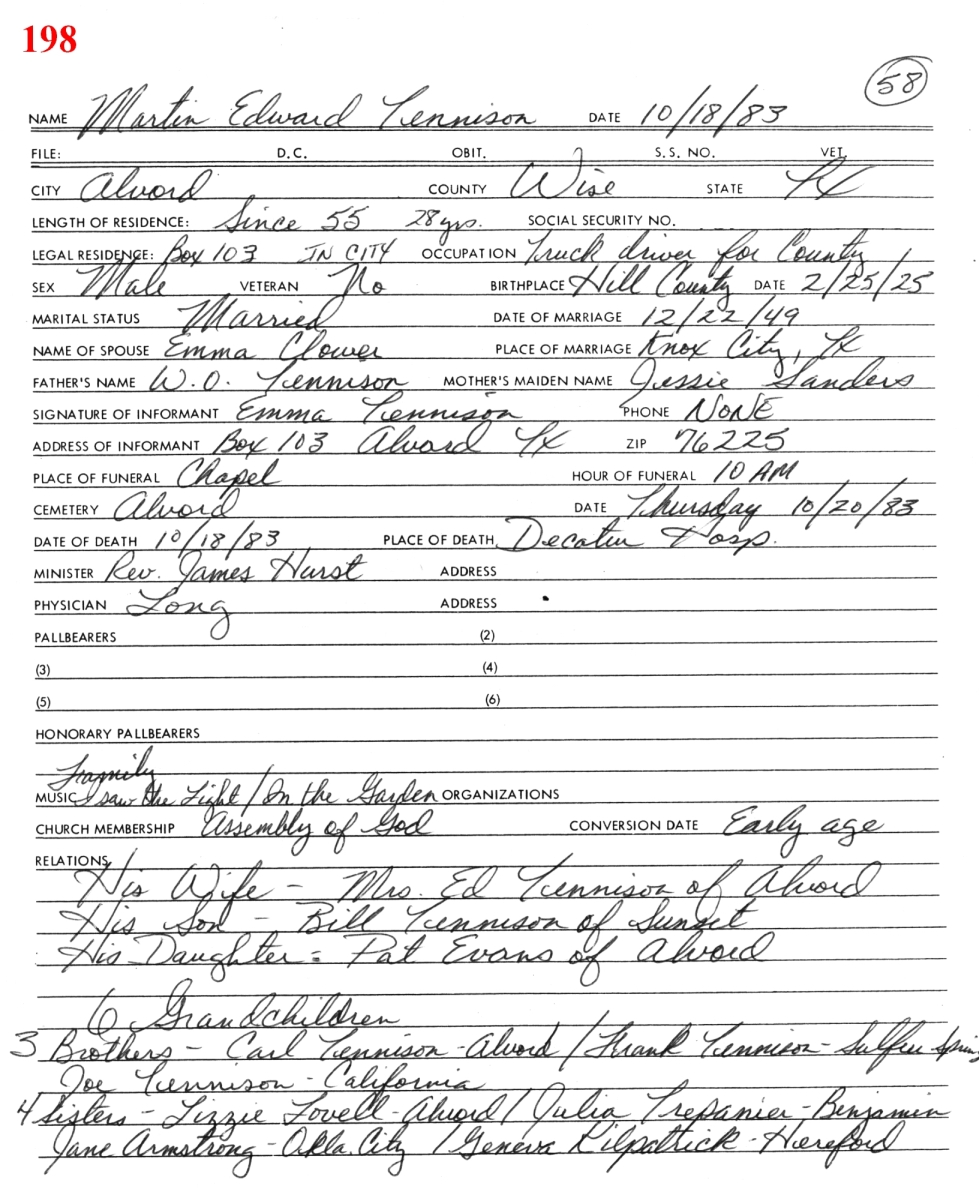 198
58
NAME Martin Edward Tennison DATE 10/18/83
FILE: D.C. OBIT. S.S. NO. VET.
CITY Alvord COUNTY Wise STATE TX
LENGTH OF RESIDENCE: Since 55 28 yrs. SOCIAL SECURITY NO.
LEGAL RESIDENCE: Box 103 IN CITY OCCUPATION Truck driver for County
SEX Male VETERAN No BIRTHPLACE Hill County DATE 2/25/25
MARITAL STATUS Married DATE OF MARRIAGE 12/22/49
NAME OF SPOUSE Emma Clower PLACE OF MARRIAGE Knox City, TX
FATHER'S NAME W.O. Tennison MOTHER'S MAIDEN NAME Jessie Sanders
SIGNATURE OF INFORMANT Emma Tennison PHONE NONE
ADDRESS OF INFORMANT Box 103 Alvord TX ZIP 76225
PLACE OF FUNERAL Chapel HOUR OF FUNERAL 10 AM
CEMETERY Alvord DATE Thursday 10/20/83
DATE OF DEATH 10/18/83 PLACE OF DEATH Decatur Hosp.
MINISTER Rev. James Hurst ADDRESS
PHYSICIAN Long ADDRESS
PALLBEARERS (2)
(3) (4)
(5) (6)
HONORARY PALLBEARERS
Family
MUSIC I saw the Light / In the Garden ORGANIZATIONS
CHURCH MEMBERSHIP Assembly of God CONVERSION DATE Early age
RELATIONS
His Wife - Mrs. Ed Tennison of Alvord
His Son - Bill Tennison of Sunset
His Daughter = Pat Evans of Alvord
6 Grandchildren
3 Brothers - Carl Tennison - Alvord / Frank Tennison - Sulfur Spring
Joe Tennison - California
4 Sisters - Lizzie Lovell - Alvord / Julia Trepanier - Benjamin
Jane Armstrong - Okla. City / Geneva Kilpatrick - Hereford